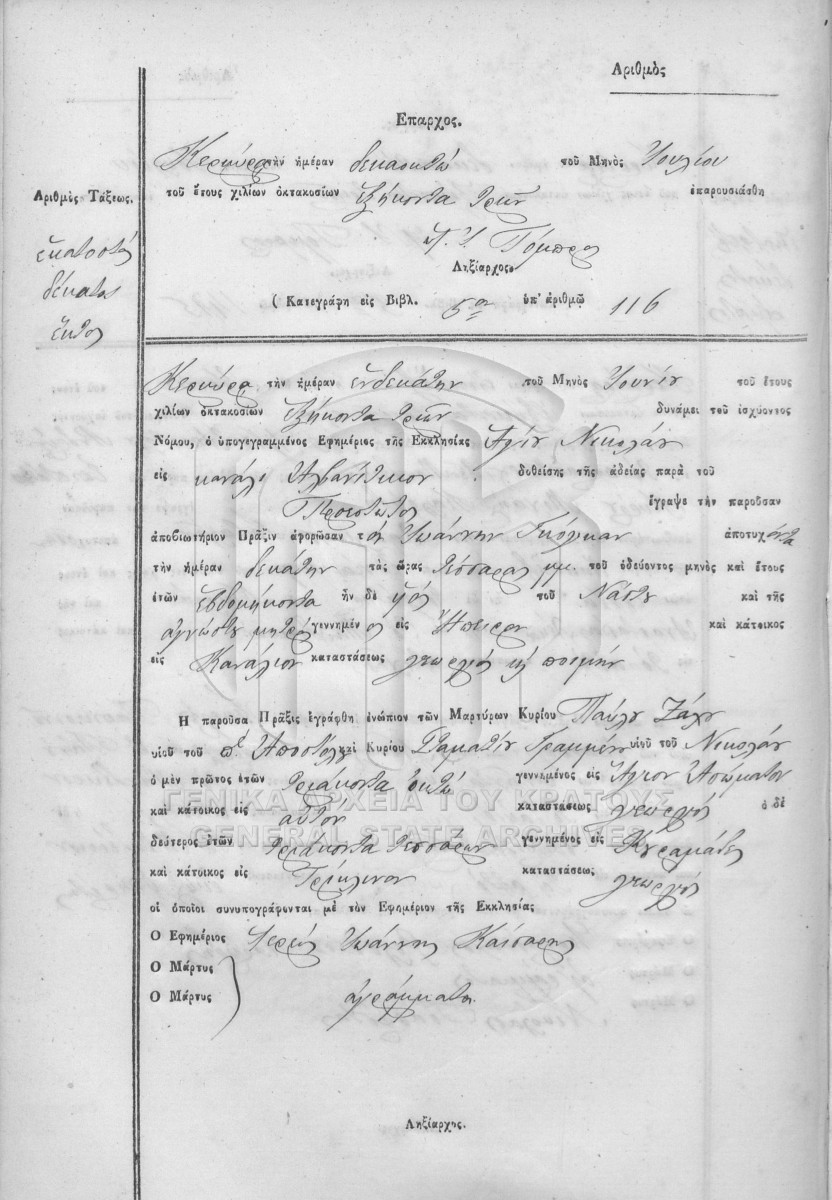 Αριθμὸς
Επαρχος.
Κερκύρα τὴν ἡμέραν δεκαοκτώ τοῦ Μηνὸς Ἰουλίου
τοῦ ἔτους χιλίων ὀκτακοσίων ἑξήκοντα τριῶν ἐπαρουσιάσθη
Ληξίαρχος.
( Κατεγράφη εἰς Βιβλ. 5ον ὑπ' ἀριθμῷ 116
Αριθμὸς Τάξεως.
ἑκατοστὸς
δέκατος
ἕκτος
Κερκύρα τὴν ἡμέραν ἑνδεκάτην τοῦ Μηνὸς Ἰουνίου τοῦ ἔτους
χιλίων ὀκτακοσίων ἑξήκοντα τριῶν δυνάμει τοῦ ἰσχύοντος
Νόμου, ὁ ὑπογεγραμμένος Εφημέριος τῆς Εκκλησίας Ἁγίου Νικολάου
εἰς κανάλι Ἀλβανίτικον δοθείσης τῆς ἀδείας παρὰ τοῦ
Προεστῶτος ἔγραψε τὴν παροῦσαν
ἀποβιωτήριον Πρᾶξιν ἀφορῶσαν τὸν Ἰωάννην ἀποτυχόντα
τὴν ἡμέραν δεκάτην τὰς ὥρας τέσσαρας μμ. τοῦ ὁδεύοντος μηνὸς καὶ ἔτους
ἐτῶν ἑβδομήκοντα ἦν δὲ υἱὸς τοῦ Νάστου καὶ τῆς
ἀγνώστου μητρὸς γεννημένος εἰς Ἤπειρον καὶ κάτοικος
εἰς Κανάλιον καταστάσεως γεωργὸς ἢ ποιμήν
Η παροῦσα Πρᾶξις ἐγράφθη ἐνώπιον τῶν Μαρτύρων Κυρίου Παύλου Ζάχου
υἱοῦ τοῦ πε Ἀποστόλη καὶ Κυρίου Σταματίου Γραμμένου υἱοῦ τοῦ Νικολάου
ὁ μὲν πρῶτος ἐτῶν τριάκοντα ὀκτώ γεννημένος εἰς Ἅγιον Ἀσώματον
καὶ κάτοικος εἰς αὐτόν καταστάσεως γεωργός ὁ δὲ
δεύτερος ἐτῶν τριάκοντα τεσσάρων γεννημένος εἰς Κυραμάδες
καὶ κάτοικος εἰς Τρίκλινον καταστάσεως γεωργός
οἱ ὁποῖοι συνυπογράφονται μὲ τὸν Εφημέριον τῆς Εκκλησίας
Ο Εφημέριος Ἱερεύς Ἰωάννης Καίσαρης
Ο Μάρτυς
Ο Μάρτυς ἀγράμματοι
Ληξίαρχης.
ΓΕΝΙΚΑ ΑΡΧΕΙΑ ΤΟΥ ΚΡΑΤΟΥΣ
GENERAL STATE ARCHIVES